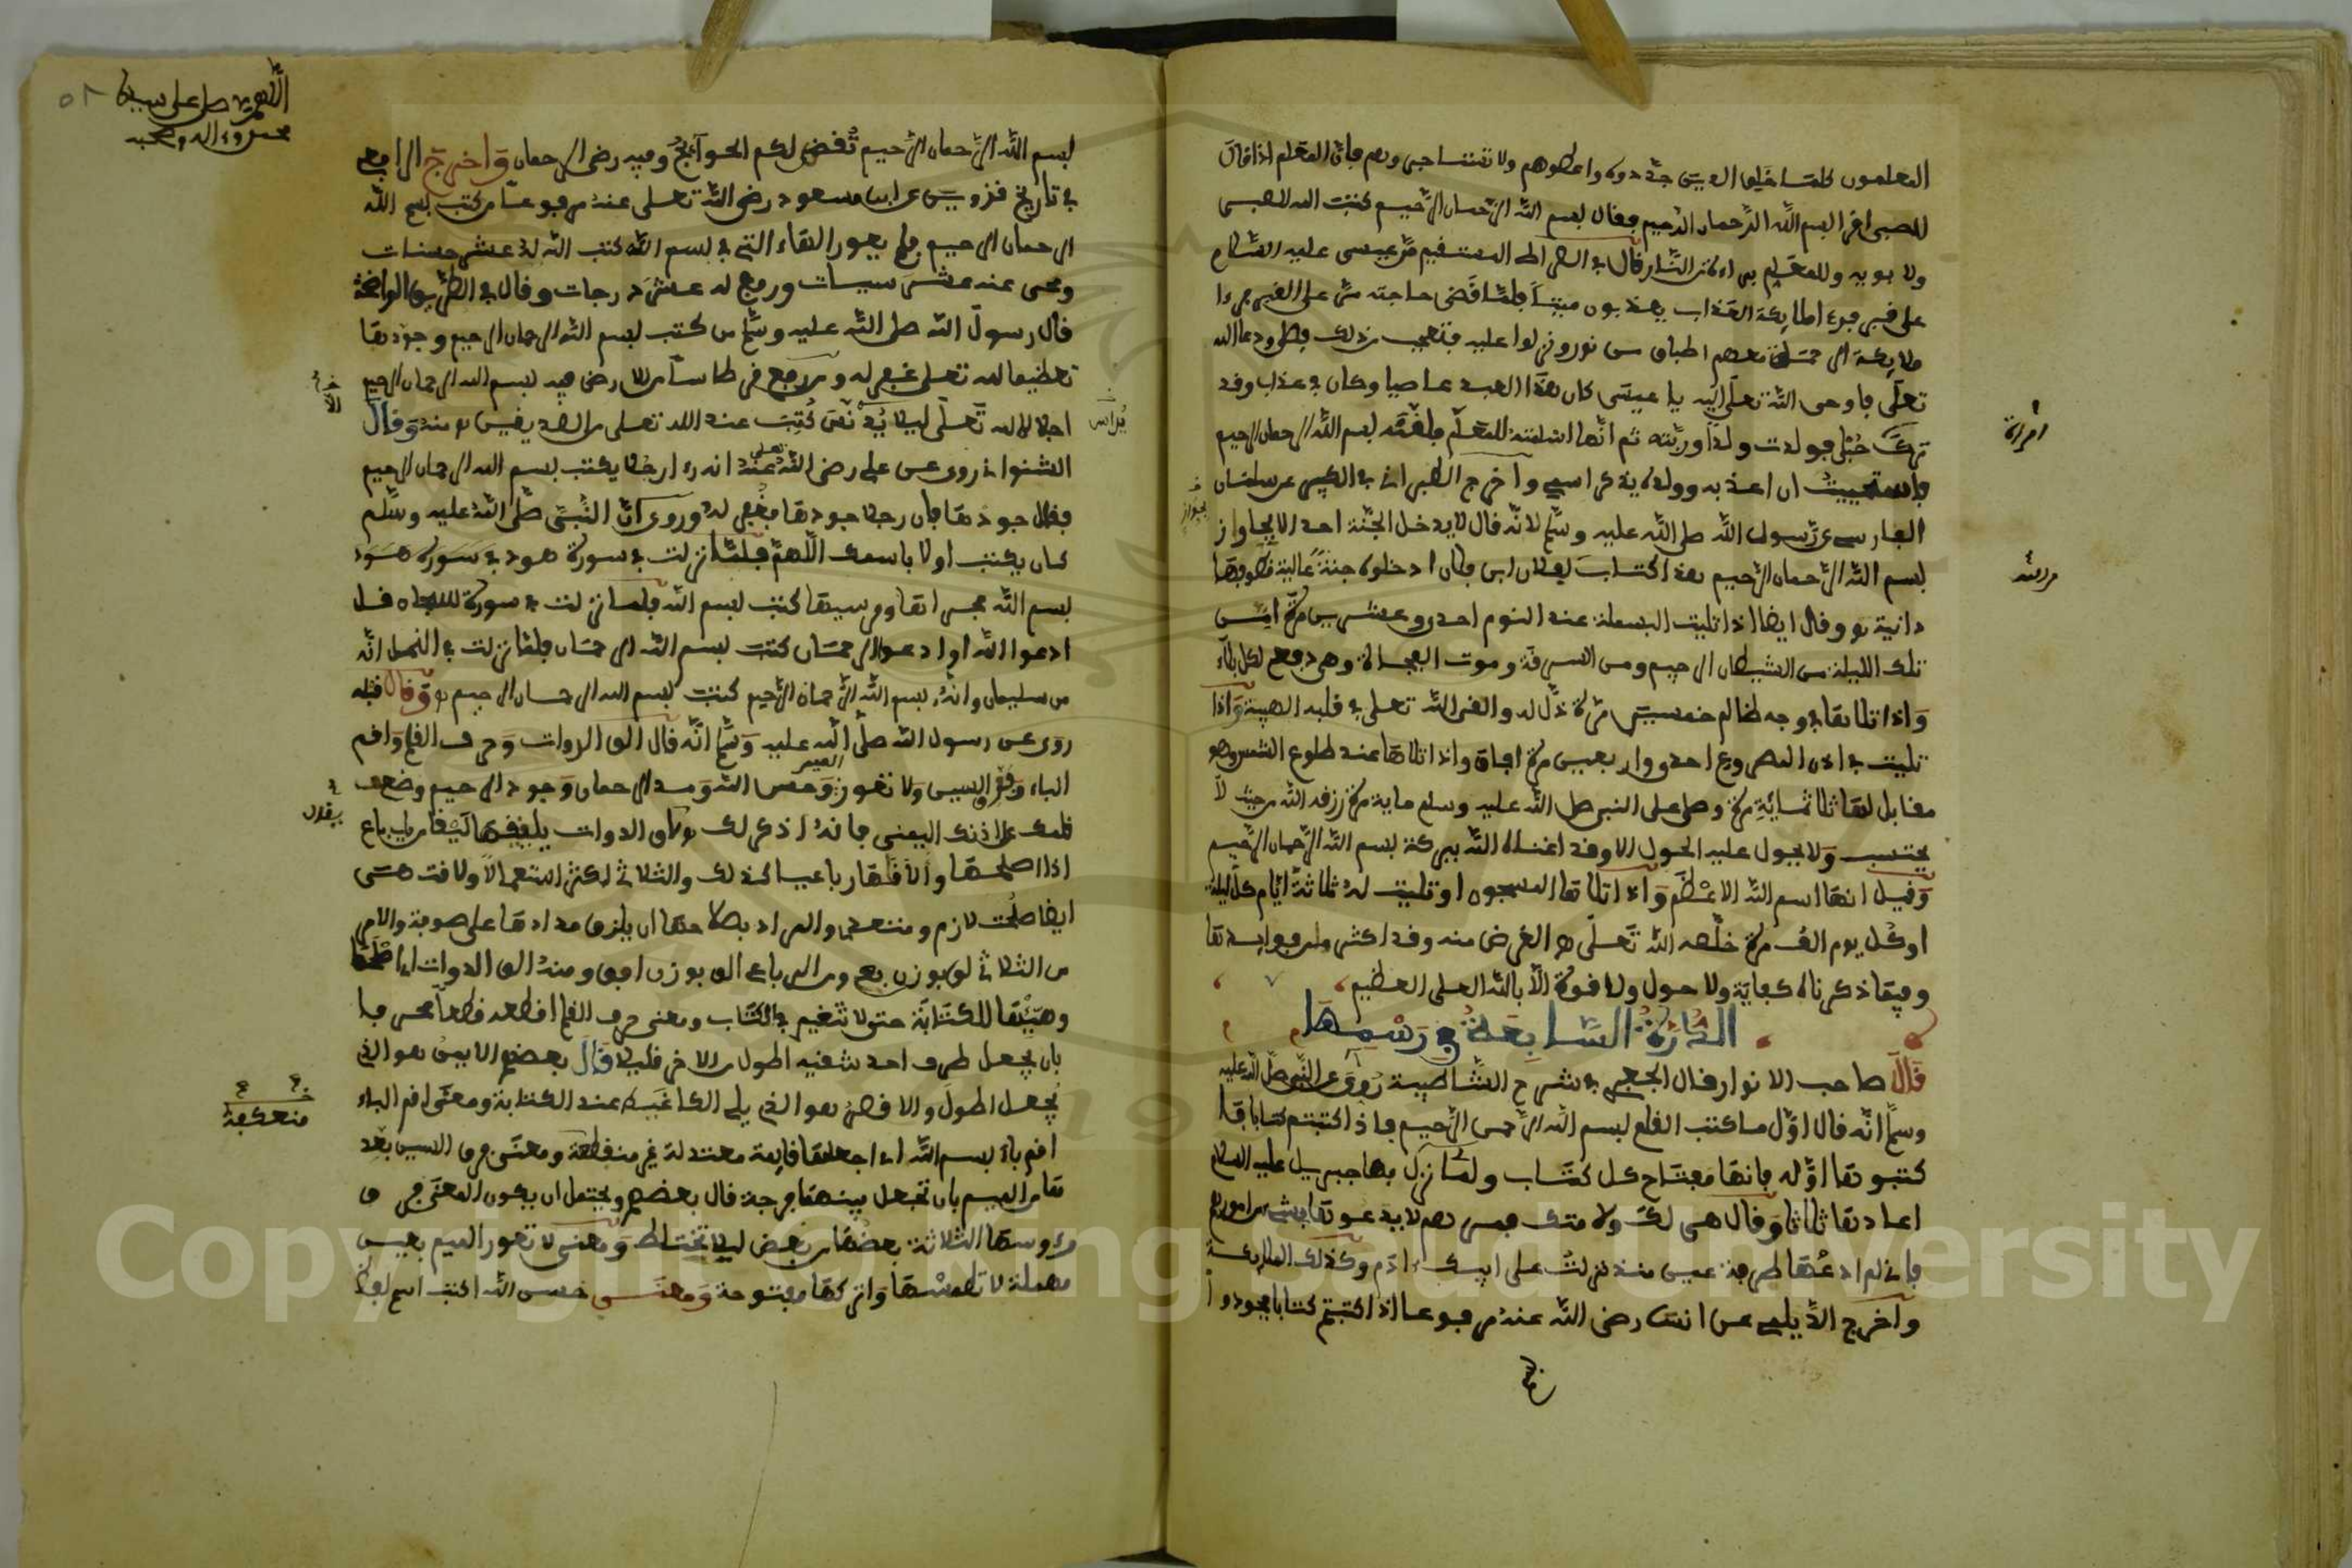 المعلمون كلما خلق الدين جددوه واعطوهم ولا تستاجروهم فان المعلم اذا قال
للصبى اقرا بسم الله الرحمان الرحيم فقال بسم الله الرحمان الرحيم كتب الله للصبى
ولابويه وللمعلم براءة من النار قال في الصراط المستقيم مر عيسى عليه السلام
على قبر فرءا ملايكة العذاب يعذبون ميتا فلما قضى حاجته مر على القبر فرءا
ملايكة الرحمة معهم اطباق من نور ونزلوا عليه فتعجب من ذلك فصلى ودعا الله
تعلى فاوحى الله تعلى اليه يا عيسى كان هذا العبد عاصيا وكان في عذاب وقد
ترك حبلى فولدت ولدا وربته ثم انها اسلمته للمعلم فلقنه بسم الله الرحمان الرحيم
فاستحييت ان اعذبه وولده يذكر اسمي واخرج الطبراني في الكبير عن سلمان
الفارسى عن رسول الله صلى الله عليه وسلم انه قال لا يدخل الجنة احد الا بجواز
بسم الله الرحمان الرحيم هذا كتاب لفلان ابن فلان ادخلوه جنة عالية قطوفها
دانية وقال ايضا اذا تليت البسملة عند النوم احدى وعشرين مرة امن
تلك الليلة من الشيطان الرجيم ومن السرقة وموت الفجاة وهى دفع لكل بلاء
واذا تلاها في وجه ظالم خمسين مرة ذل له والقى الله تعلى في قلبه الهيبة واذا
تليت في اذن المصروع احدى واربعين مرة افاق واذا تلاها عند طلوع الشمس وهو
مقابل لها ثلاثمائة مرة وصلى على النبي صلى الله عليه وسلم ماية مرة رزقه الله من حيث لا
يحتسب ولا يحول عليه الحول الا وقد اغناه الله ببركة بسم الله الرحمان الرحيم
وقيل انها اسم الله الاعظم واذا تلاها المسجون او تليت له ثلاثة ايام كل ليلة
او كل يوم الف مرة خلصه الله تعلى الغرض منه وقد اكثر من فوايدها
وفيما ذكرناه كفاية ولا حول ولا قوة الا بالله العلى العظيم
الدرة السابعة في رسمها
قال صاحب الانوار قال الجعبري في شرح الشاطبية روى عن النبى صلى الله عليه
وسلم انه قال اول ما كتب القلم بسم الله الرحمن الرحيم فاذا كتبتم كتابا فا
كتبوها اوله فانها مفتاح كل كتاب ولما نزل بها جبريل عليه السلام
اعادها ثلاثا وقال هى لك ولامتك فمرهم لا يدعوها في شيء من امورهم
فاني لم ادعها طرفة عين منذ نزلت على ابيك ءادم وكذلك الملايكة
واخرج الديلمى عن انس رضى الله عنه مرفوعا اذا كتبتم كتابا فجودوا
امراة
بجواز
اللهم صل على سيدنا
محمد وءاله وصحبه
بسم الله الرحمان الرحيم تقض لكم الحوائج وفيه رضى الرحمان واخرج الرافعى
في تاريخ قزوين عن ابن مسعود رضى الله تعلى عنه مرفوعا من كتب بسم الله
الرحمان الرحيم فلم يعور الهاء التى في بسم الله كتب الله له عشر حسنات
ومحى عنه عشر سيئات ورفع له عشر درجات وقال في الطريق الواضحة
قال رسول الله صلى الله عليه وسلم من كتب بسم الله الرحمان الرحيم وجودها
تعظيما لله تعلى غفر له ومن رفع قرطاسا من الارض فيه بسم الله الرحمان الرحيم
اجلالا لله تعلى ليلا يدنس كتب عند الله تعلى من الصديقين منه وقال
الشنواني روى عن على رضى الله تعلى عنه انه رءا رجلا يكتب بسم الله الرحمان الرحيم
فقال جودها فان رجلا جودها فغفر له وروى ان النبى صلى الله عليه وسلم
كان يكتب اولا باسمك اللهم فلما نزلت في سورة هود
بسم الله مجراها ومرسيها كتب بسم الله فلما نزلت في سورة سبحان قل
ادعوا الله او ادعوا الرحمان كتب بسم الله الرحمان فلما نزلت في النمل انه
من سليمان وانه بسم الله الرحمان الرحيم كتب بسم الله الرحمان الرحيم وقال قبله
روى عن رسول الله صلى الله عليه وسلم انه قال الق الدوات وحرف القلم واقم
الباء وفرق السين ولا تعور الميم وحسن الله ومد الرحمان وجود الرحيم وضع
قلمك على اذنك اليمنى فانه اذكر لك
اذا اصلحها والاقها رباعيا كذلك والثلاثي اكثر استعمالا ولاقت هى
ايضا صلحت لازم ومتعد والمراد بصلاحها ان يلزق مدادها على صوفة والامر
من الثلاثى لق بوزن بع ومن الرباعى الق بوزن اقم ومنه الق الدوات اى اصلحها
وهيئها للكتابة حتى لا تتغير في الكتاب ومعنى حرف القلم اقطعه قطعا محرفا
بان يجعل طرف احد شقيه اطول من الاخر قليلا قال بعضهم الايمن هو الذى
يجعل اطول والاقصر هو الذى يلى الكاغيد عند الكتابة ومعنى اقم الباء
اقم باء بسم الله اى اجعلها قايمة معتدلة غير منقطعة ومعنى فرق السين بعد
ها من الميم بان تجعل بينهما فرجة قال بعضهم ويحتمل ان يكون المعنى فرق
رءوسها الثلاثة بعضها من بعض ليلا تختلط ومعنى لا تعور الميم بعين
مهملة لا تطمسها واتركها مفتوحة ومعنى حسن الله اكتب اسم
منعكفة
Copyright © King Saud University